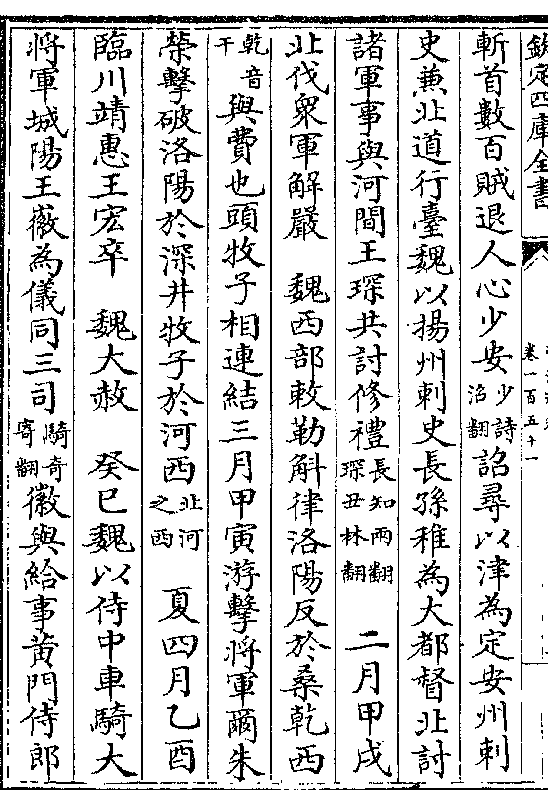 欽定四庫全書
卷一百五十一
斬首數百賊退人心少安少詩沼翻詔尋以津為定安州刺
史兼北道行臺魏以揚州刺史長孫稚為大都督北討
諸軍事與河間王琛共討修禮長知兩翻琛丑林翻 二月甲戌
北伐衆軍解嚴 魏西部敕勒斛律洛陽反於桑乾西
乾音干與費也頭牧子相連結三月甲寅游擊將軍爾朱
榮擊破洛陽於深井牧子於河西北河之西 夏四月乙酉
臨川靖惠王宏卒 魏大赦 癸巳魏以侍中車騎大
將軍城陽王徽為儀同三司騎奇寄翻徽與給事黄門侍郎